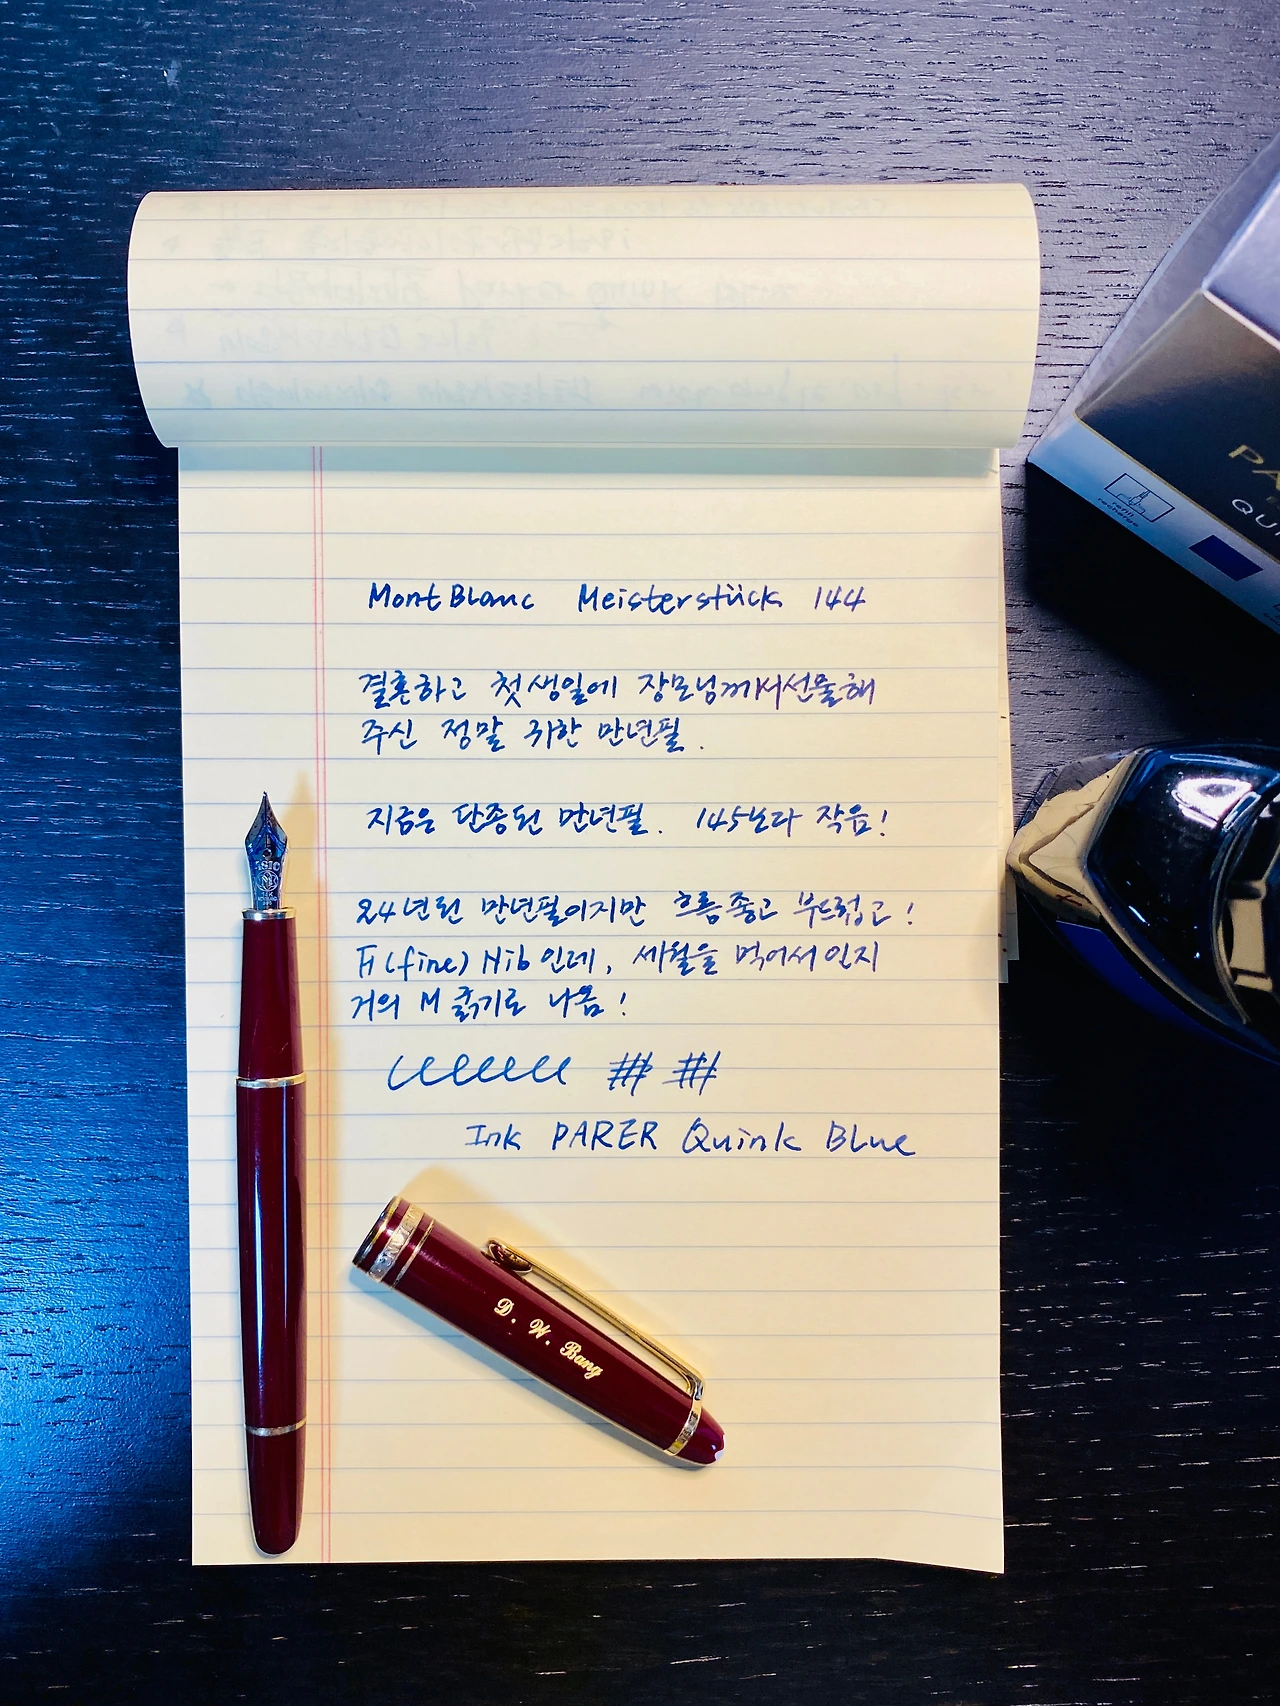 MontBlanc Meisterstück 144
결혼하고 첫 생일에 장모님께서 선물해
주신 정말 귀한 만년필.
지금은 단종된 만년필. 145보다 작음!
24년된 만년필이지만 흐름좋고 부드럽고!
F(fine) Nib인데, 세월을 먹어서인지
거의 M 굵기로 나옴!
Ink PARER Quink Blue
D. W. Bang
refill
recharge